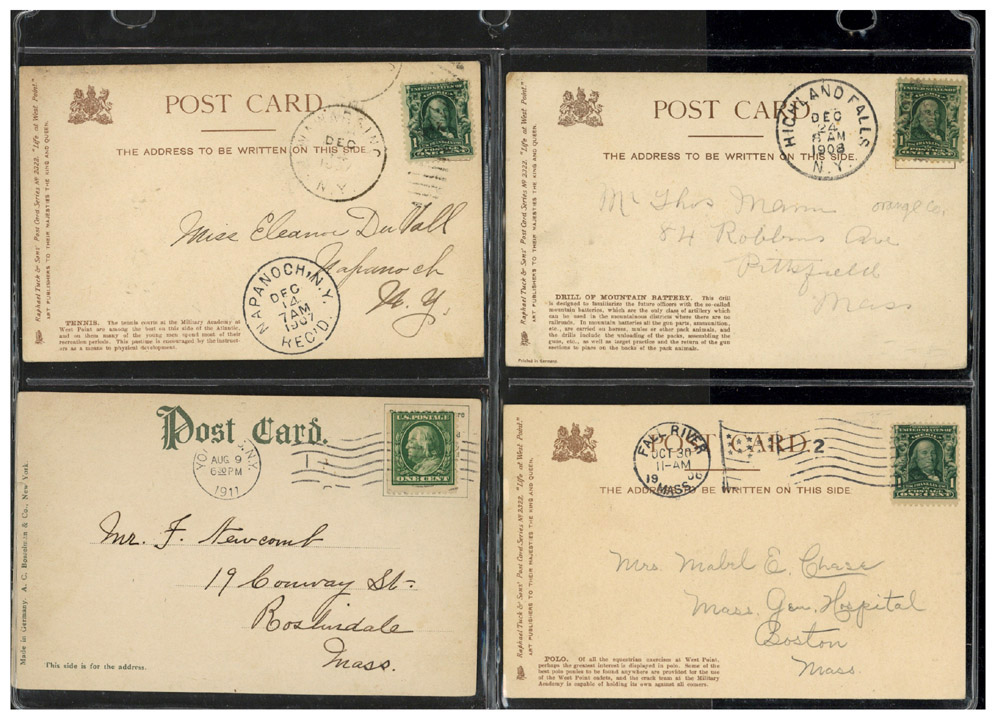 POST CARD
THE ADDRESS TO BE WRITTEN ON THIS SIDE
Raphael Tuck & Sons' Post Card Series No 2322. "Life at West Point."
ART PUBLISHERS TO THEIR MAJESTIES THE KING AND QUEEN.
DEC
N.Y.
Miss Eleanor DuVall
Napanoch
N.Y.
NAPANOCH, N.Y.
DEC
14
7AM
1907
REC'D.
TENNIS. The tennis courts at the Military Academy at
West Point are among the best on this side of the Atlantic,
and on them many of the young men spend most of their
recreation periods. This pastime is encouraged by the instruct-
ors as a means to physical development.
POST CARD
THE ADDRESS TO BE WRITTEN ON THIS SIDE.
HIGHLAND FALLS
DEC
24
8 AM
1908
N.Y.
Raphael Tuck & Sons' Post Card Series No 2322. "Life at West Point."
ART PUBLISHERS TO THEIR MAJESTIES THE KING AND QUEEN.
Mr Thos Mann orange Co.
84 Robbins Ave
Pittsfield
Mass
DRILL OF MOUNTAIN BATTERY. This drill
is designed to familiarize the future officers with the so-called
mountain batteries, which are the only class of artillery which
can be used in the mountainous districts where there are no
railroads. In mountain batteries all the gun parts, ammunition,
etc., are carried on horses, mules or other pack animals, and
the drills include the unloading of the packs, assembling the
guns, etc., as well as target practice and the return of the gun
sections to place on the backs of the pack animals.
Printed in Germany
Post Card.
AUG 9
6-30PM
1911
U.S. POSTAGE
ONE CENT
Made in Germany. A. C. Bosselman & Co., New York.
Mr. F. Newcomb
19 Conway St-
Roslindale
Mass.
This side is for the address.
POST CARD.
THE ADDRESS TO BE WRITTEN ON THIS SIDE.
FALL RIVER
OCT 30
11-AM
MASS.
2
ONE CENT
Raphael Tuck & Sons' Post Card Series No 2322. "Life at West Point."
ART PUBLISHERS TO THEIR MAJESTIES THE KING AND QUEEN.
Mrs Mabel E. Chase
Mass. Gen. Hospital
Boston
Mass.
POLO. Of all the equestrian exercises at West Point,
perhaps the greatest interest is displayed in polo. Some of the
best polo ponies to be found anywhere are provided for the use
of the West Point cadets, and the crack team at the Military
Academy is capable of holding its own against all comers.